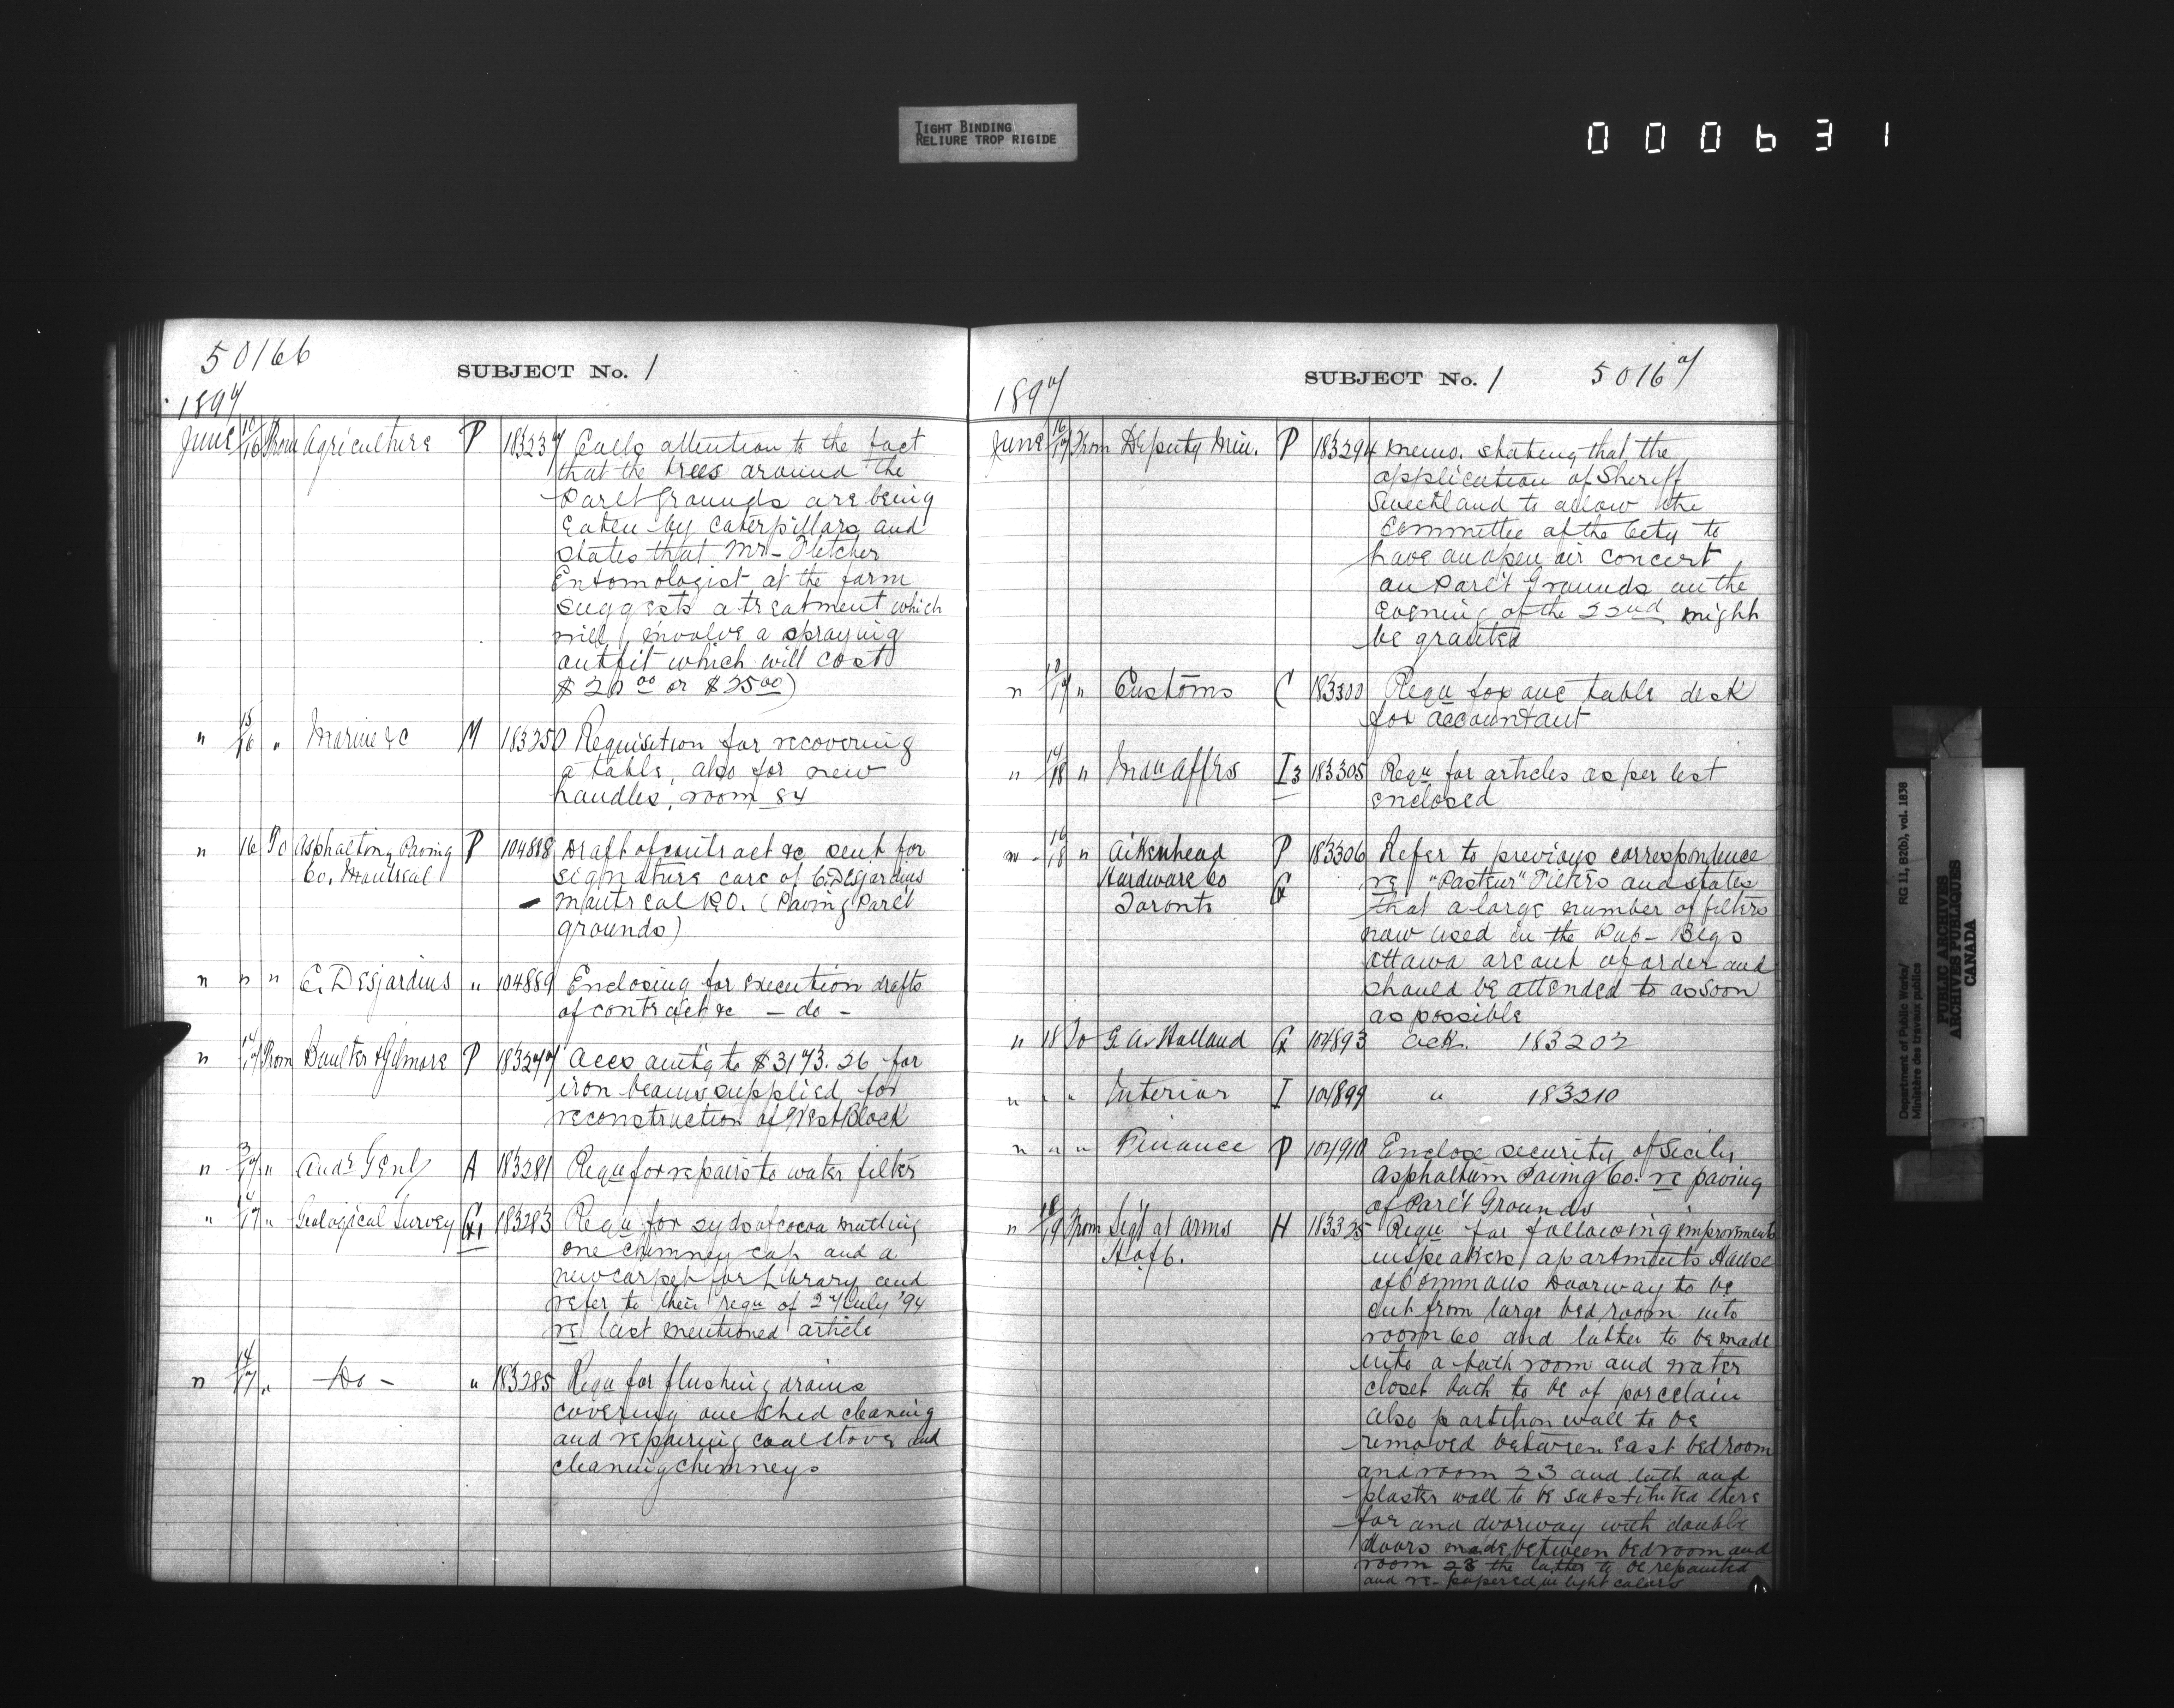 TIGHT BINDING
RELIURE TROP RIGIDE
000631
50166
SUBJECT No. 1
1897
June 10/16 From Agriculture P 183237 Calls attention to the fact
that the trees around the
Parlt Grounds are being
Eaten by caterpillars and
states that Mr- Fletcher
Entomologist at the farm
suggests a treatment which
will involve a spraying
outfit which will cost
$20.00 or $25.00)
" 15/16 " Marine &c M 183250 Requisition for recovering
a table, also for new
handles, room 84
" 16 To Asphaltin Paving P 104888 Draft of contract &c sent for
Co. Montreal signature care of C. Desjardins
- Montreal P.O. (Paving Parlt
grounds)
" " " C. Desjardins " 104889 Enclosing for execution drafts
of contract &c - do -
" 14/17 From Boulter & Gilmore P 183277 Accs amtg to $3173.26 for
iron beams supplied for
reconstruction of West Block
" 3/17 " Audr Genl A 183281 Requ for repairs to water filter
" 14/17 " Geological Survey G1 183283 Requ for syds of cocoa matting
one chimney cap and a
new carpet for Library and
refer to their requ of 27 July '94
re last mentioned article
" 14/17 " - Do - " 183285 Requ for flushing drains
covering one shed cleaning
and repairing coal stove and
cleaning chimneys
SUBJECT No. 1 50167
1897
June 16/17 From Deputy Min. P 183294 Memo. stating that the
application of Sheriff
Sweetland to allow the
Committee of the City to
have an open air concert
on Parlt Grounds on the
evening of the 22nd might
be granted
" 17 " Customs C 183300 Requ for one table desk
for accountant
" 17/18 " Indn Affrs I3 183305 Requ for articles as per list
enclosed
" 18 " Aikenhead P 183306 Refer to previous correspondence
Hardware Co G re "Pasteur" Filters and states
Toronto that a large number of filters
now used in the Pub- Blgs
Ottawa are out of order and
should be attended to as soon
as possible
" 18 To G. A. Holland G 104893 ack. 183202
" " " Interior I 104899 " 183210
" " " Finance P 104910 Enclose security of Sicily
Asphaltum Paving Co. re paving
of Parlt Grounds
" 18/19 From Sergt at Arms H 183325 Requ for following improvments
H of C. in speakers apartments House
of Commons Doorway to be
cut from large bedroom into
room 60 and latter to be made
into a bath room and water
closet bath to be of porcelain
also partition wall to be
removed between East bedroom
and room 23 and lath and
plaster wall to be substituted there
for and doorway with double
doors made between bedroom and
room 23 the latter to be repainted
and re-papered in light colors
Department of Public Works/ RG 11, B2(b), vol. 1838
Ministère des travaux publics
PUBLIC ARCHIVES
ARCHIVES PUBLIQUES
CANADA